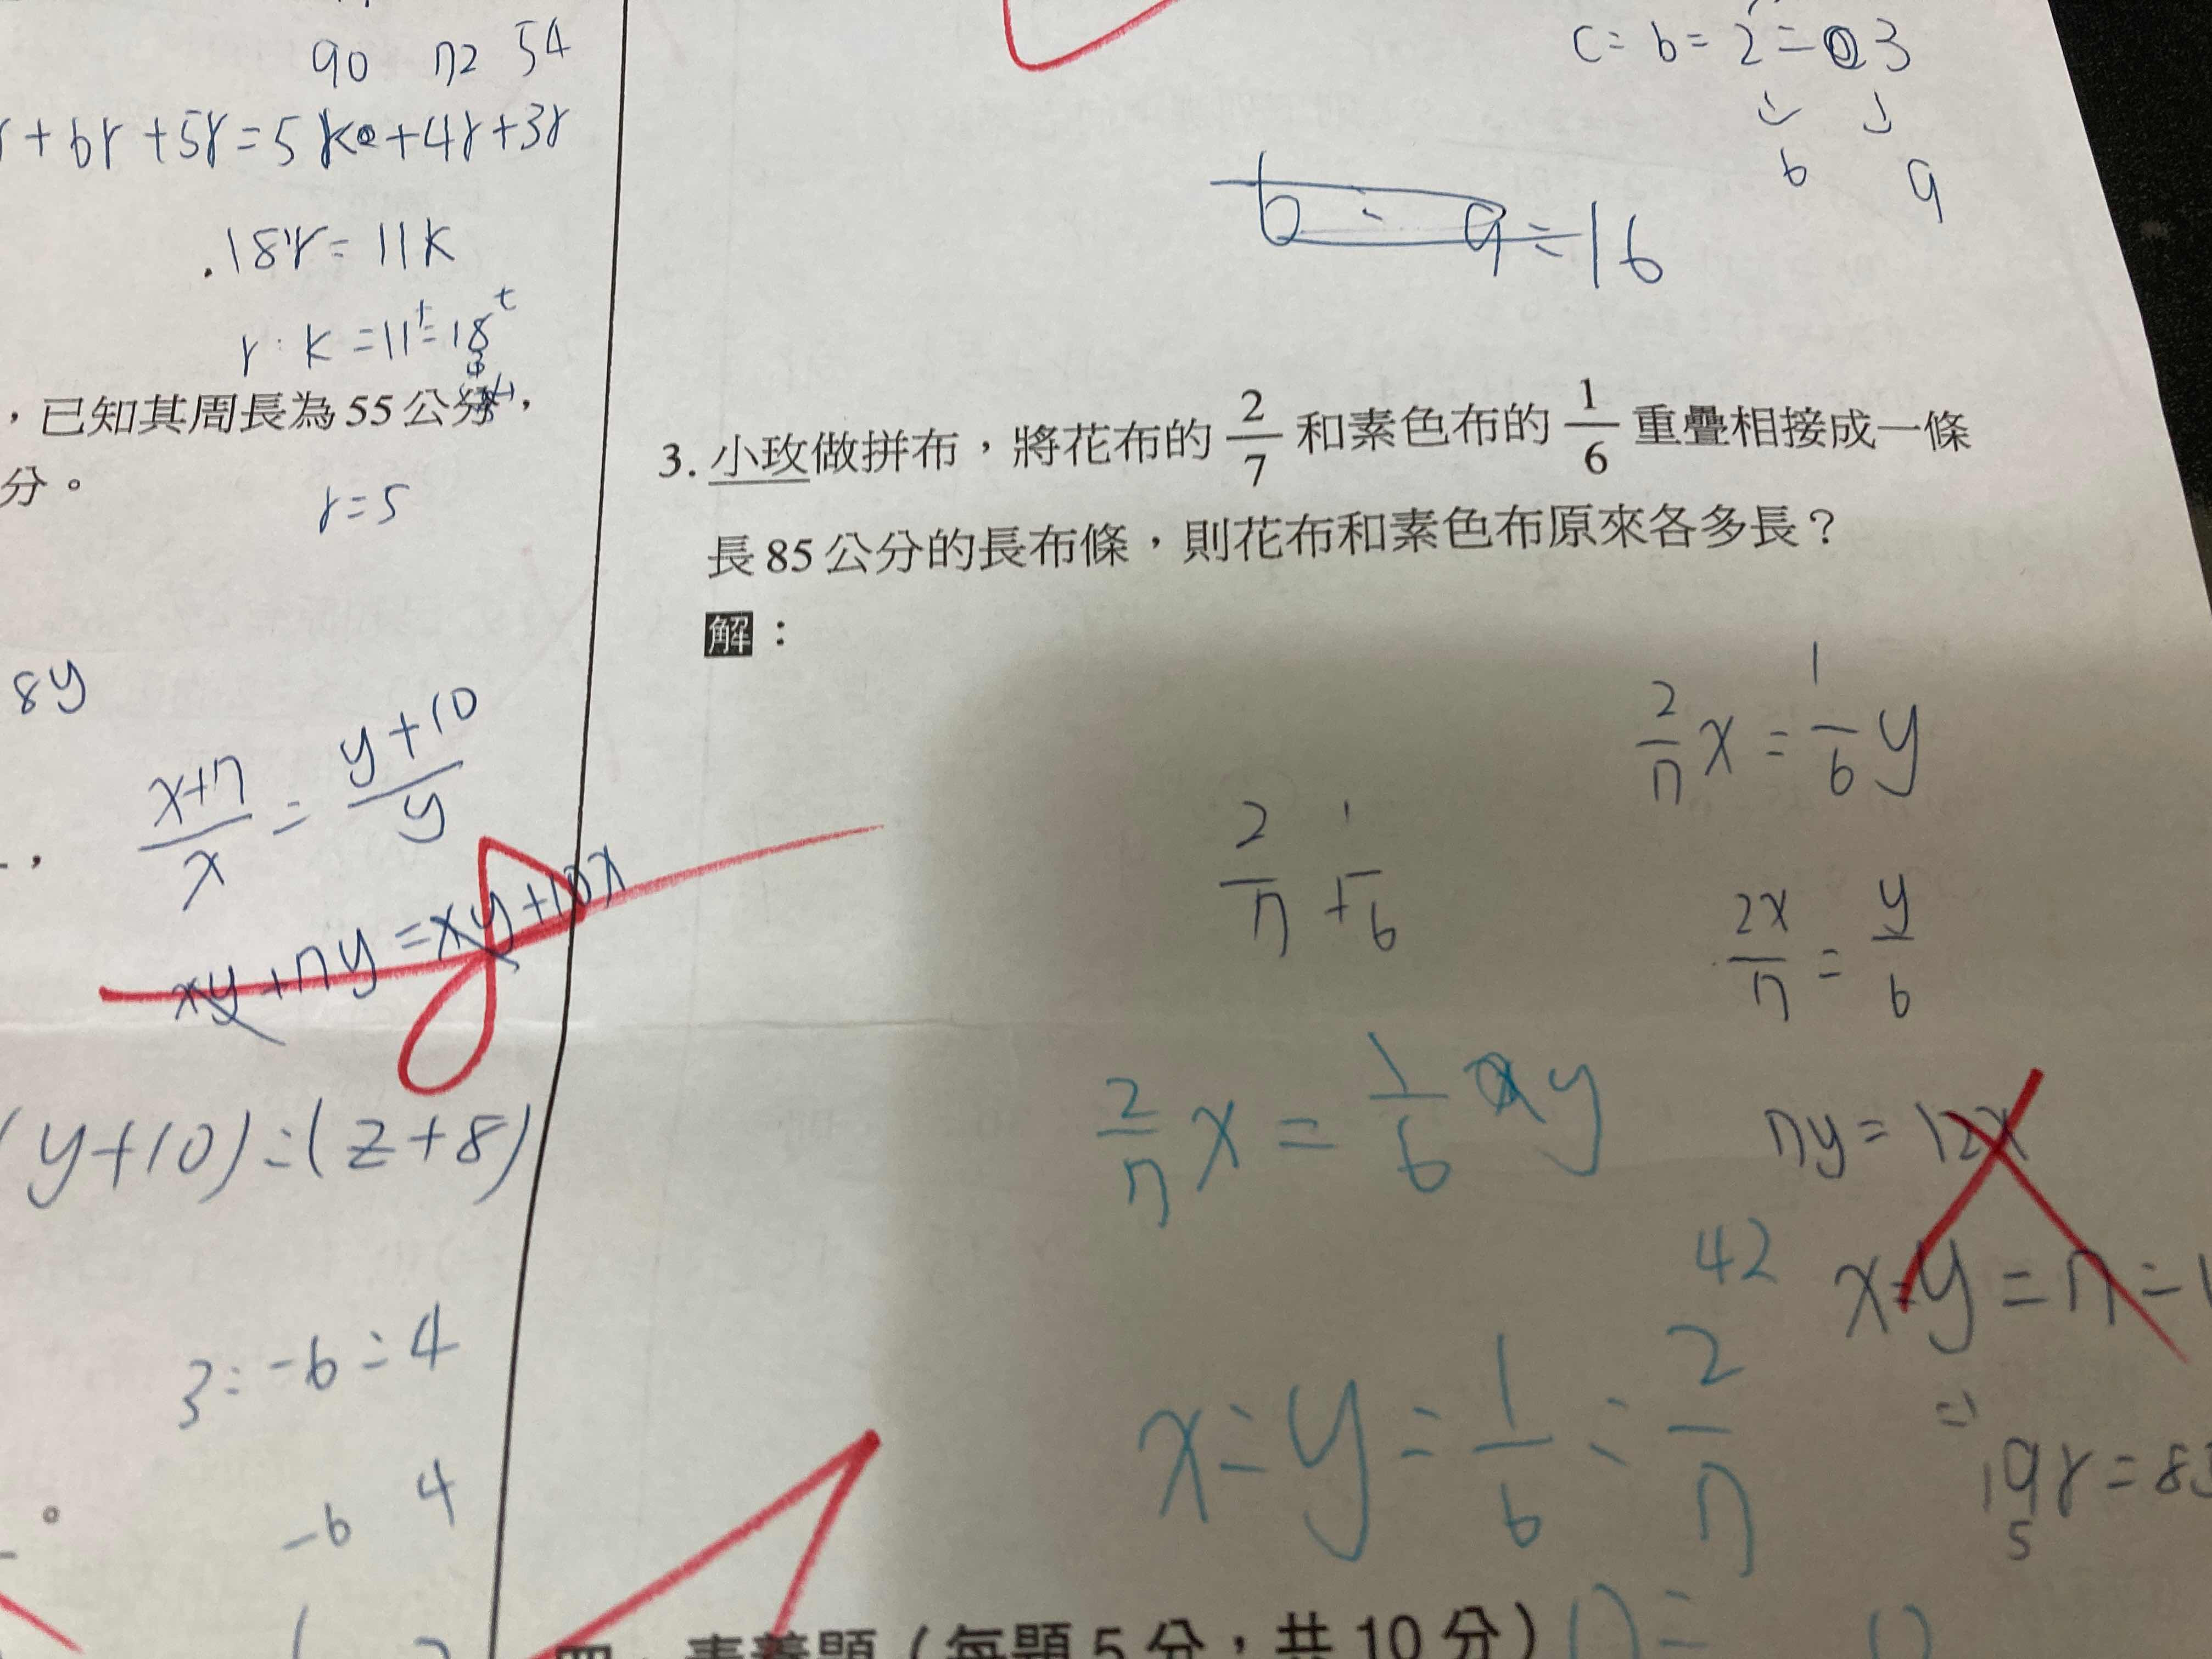 90 72 54
+6r+5r=5k+4r+3r
18r=11k
r:k=11t:18t
，已知其周長為55公分，
分。
r=5
8y
x+7/x = y+10/y
xy+7y=xy+10x
(y+10):(z+8)
3:-6:4
-6 4
c:b=2:3
6 9
6:9=16
3. 小玫做拼布，將花布的 2/7 和素色布的 1/6 重疊相接成一條
長85公分的長布條，則花布和素色布原來各多長？
解：
2/7 x = 1/6 y
2/7 + 1/6
2x/7 = y/6
2/7 x = 1/6 y
7y=12x
42
x:y=7:1
x:y=1/6:2/7
19r=85
5
四、素養題（每題5分，共10分）